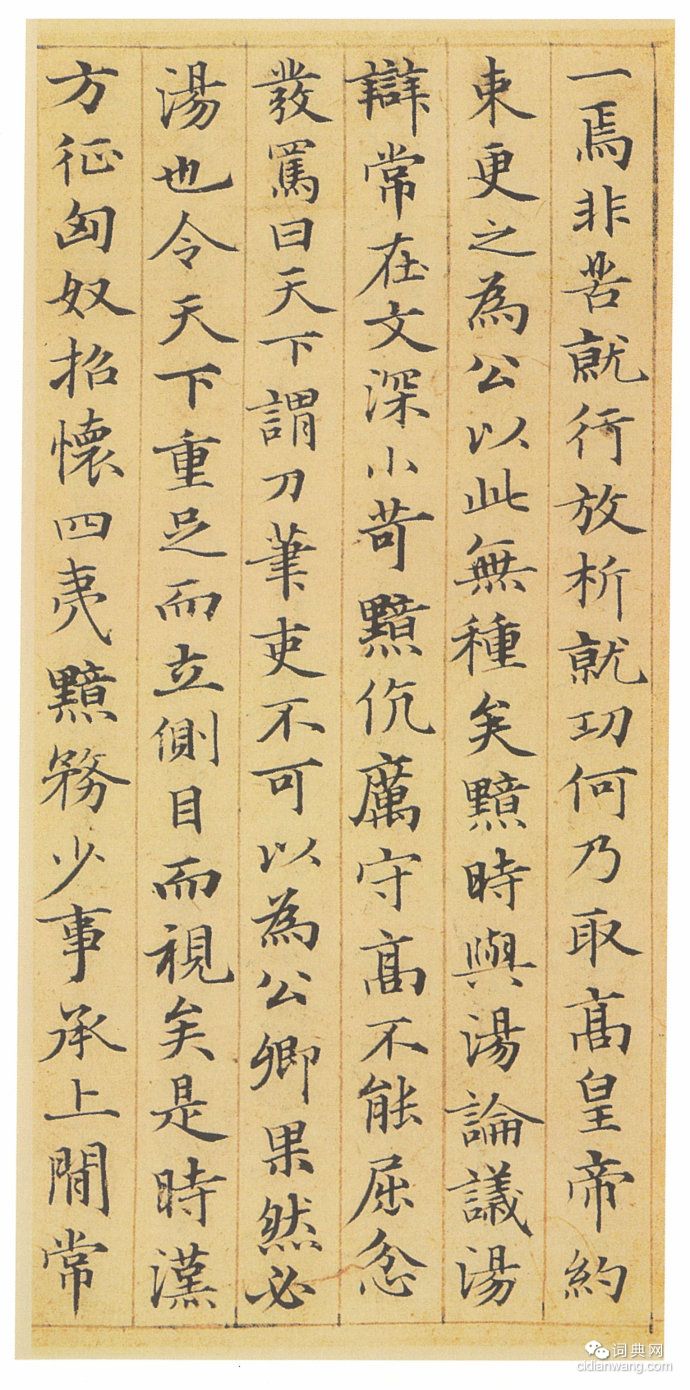 一焉非苦就行放析就功何乃取髙皇帝約
束更之為公以此無種矣黯時與湯論議湯
辯常在文深小苛黯伉厲守髙不能屈忿
發罵曰天下謂刀筆吏不可以為公卿果然必
湯也令天下重足而立側目而視矣是時漢
方征匈奴招懷四夷黯務少事承上間常
词典网
cidianwang.com